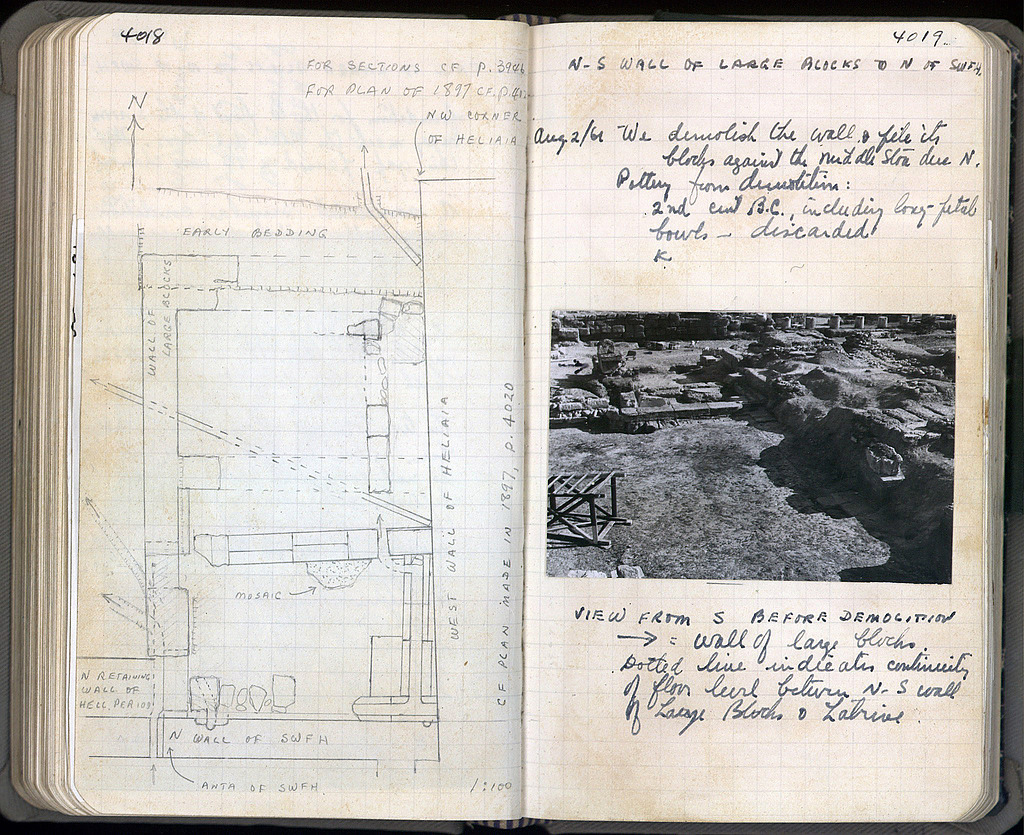 4018
FOR SECTIONS CF P. 3946
FOR PLAN OF 1897 CF. P.
N
NW CORNER
OF HELIAIA
EARLY BEDDING
WALL OF
LARGE BLOCKS
WEST WALL OF HELIAIA
CF PLAN MADE IN 1897, P. 4020
MOSAIC
N RETAINING
WALL OF
HELL. PERIOD
N WALL OF SWFH
ANTA OF SWFH
1:100
4019.
N-S WALL OF LARGE BLOCKS TO N OF SWFH.
Aug. 2/61 We demolish the wall & pile its
blocks against the Middle Stoa due N.
Pottery from demolition:
2nd cent B.C., including long-petal
bowls - discarded
K
VIEW FROM S BEFORE DEMOLITION
→ = wall of large blocks.
Dotted line indicates continuity
of floor level between N-S wall
of Large Blocks & Latrine.